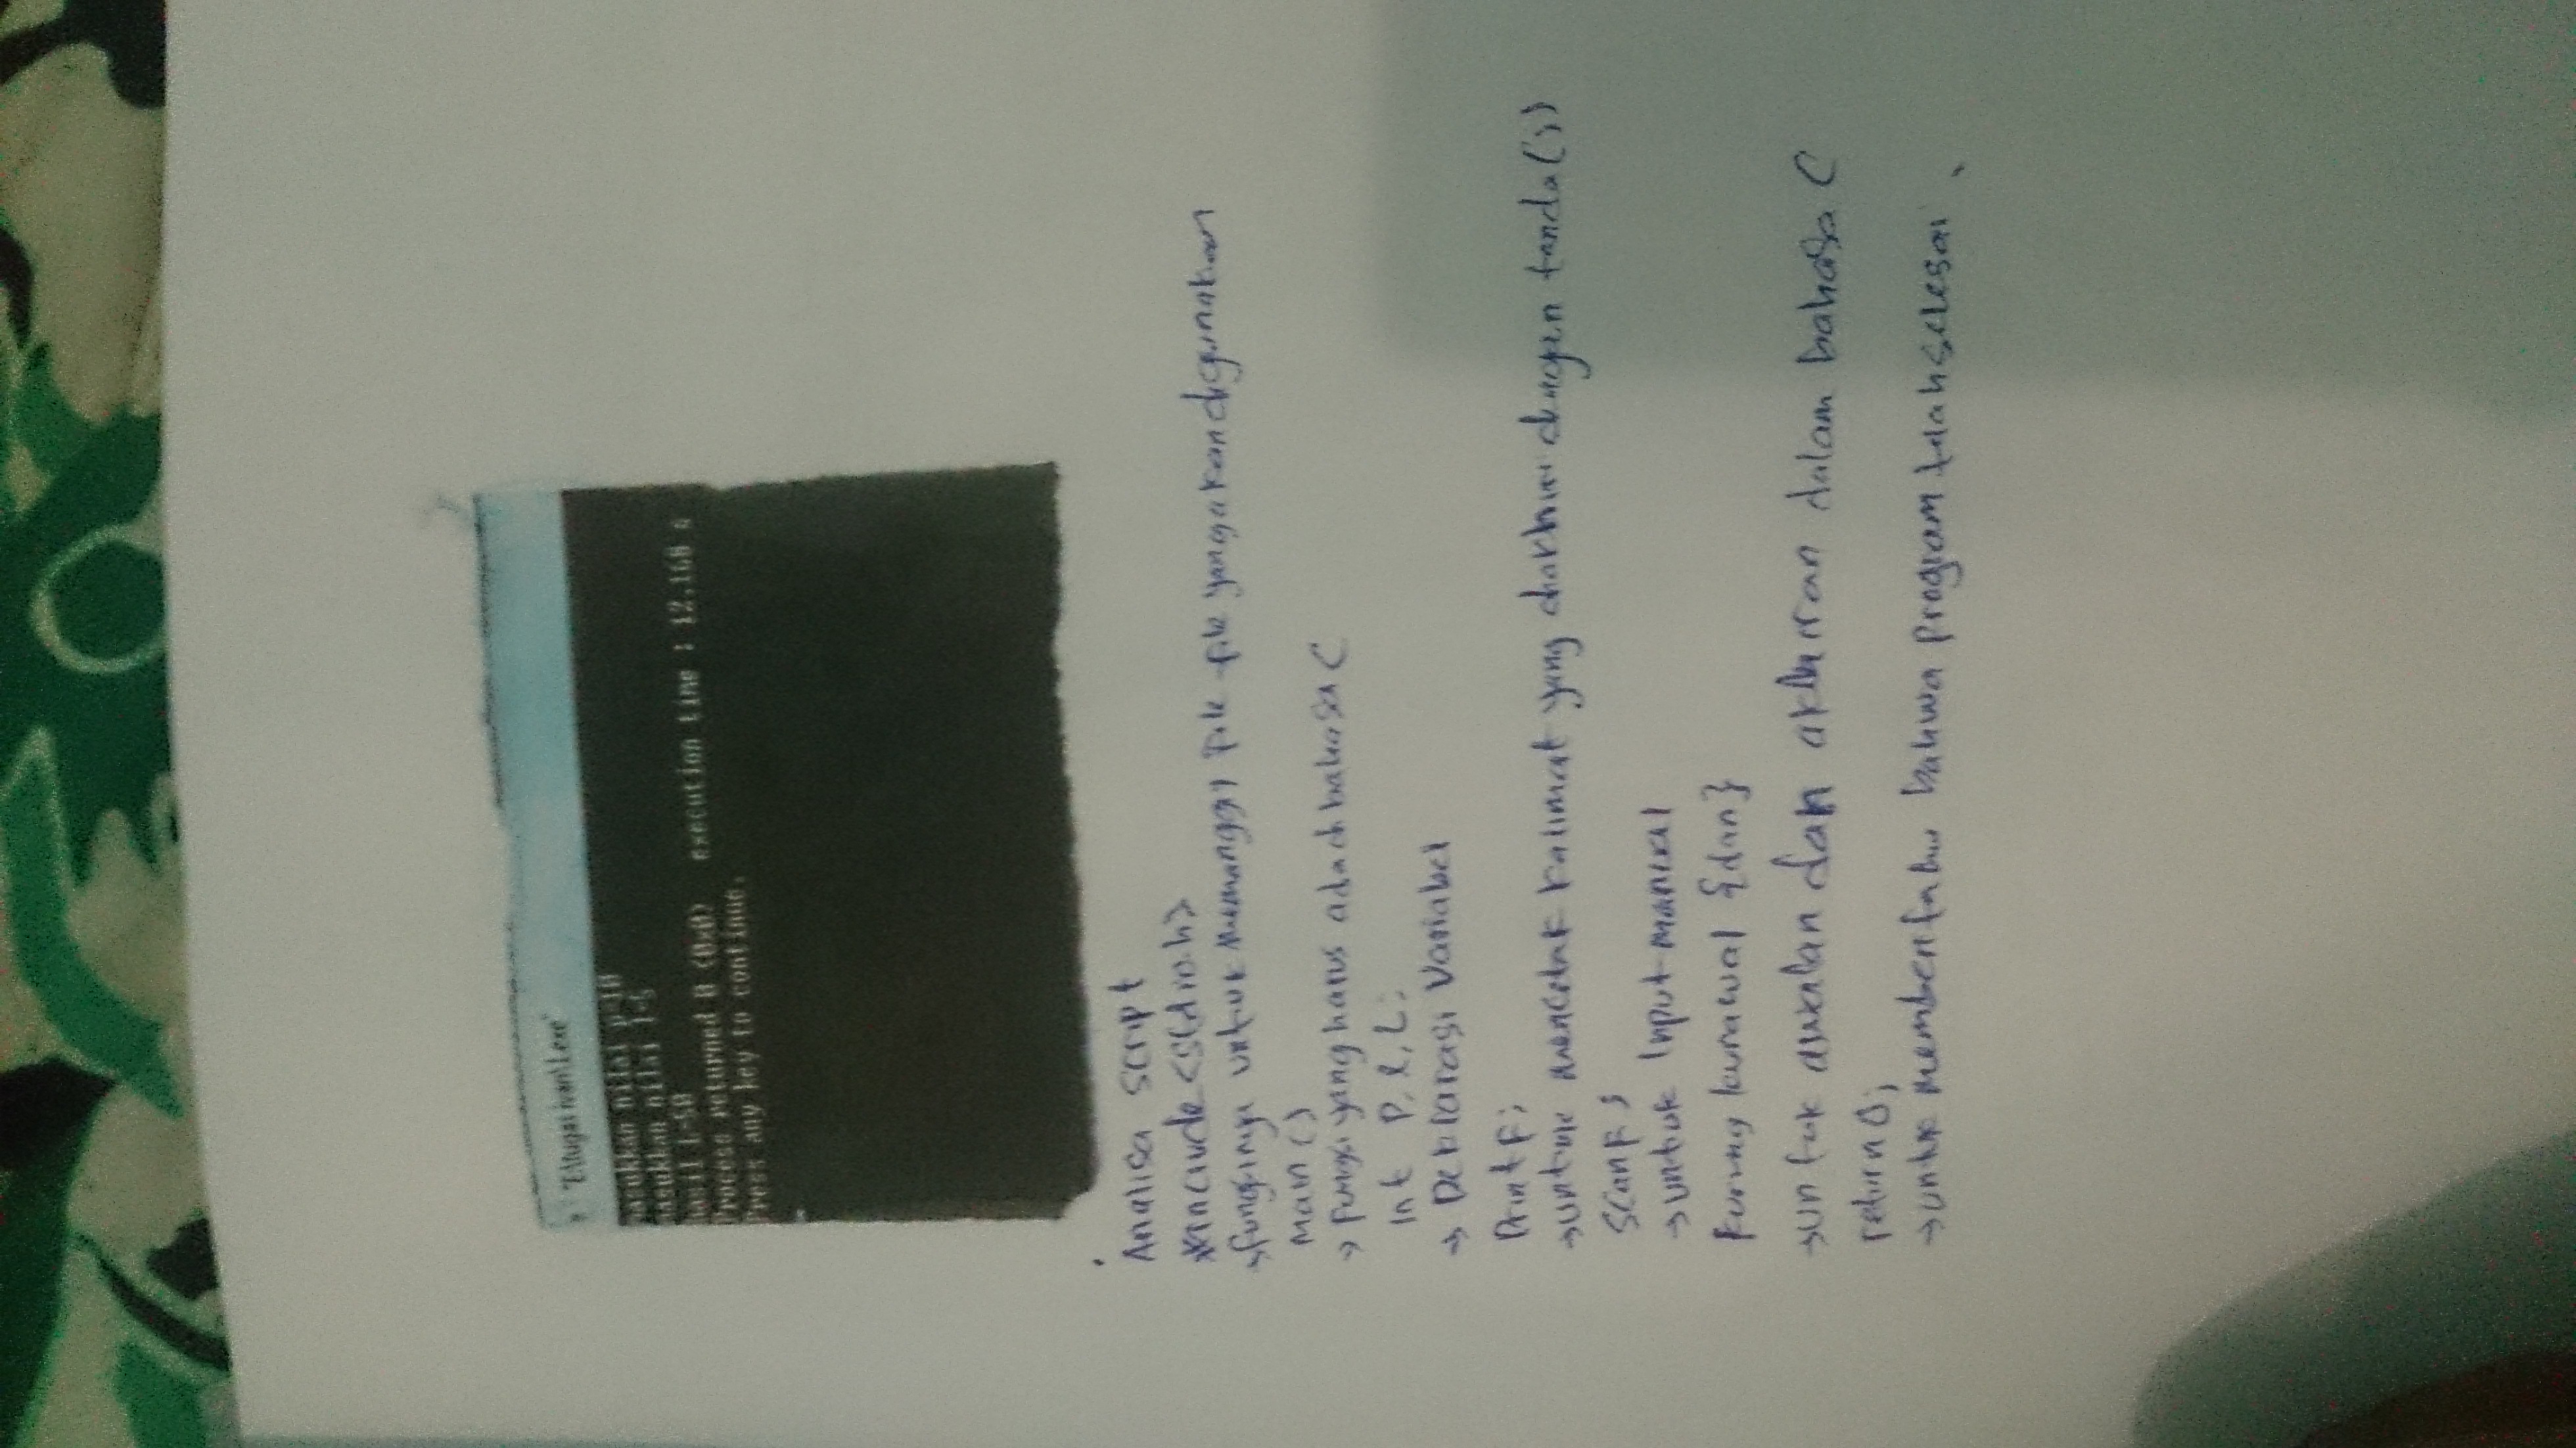 "E:\tugas ivan\1.exe"
masukkan nilai p=10
masukkan nilai l=5
hasil L=50
Process returned 0 (0x0) execution time : 12.168 s
Press any key to continue.
Analisa script
#include <stdio.h>
→ fungsinya untuk memanggil file-file yang akan digunakan
main ()
→ fungsi yang harus ada di bahasa C
int P, l, L;
→ Deklarasi Variabel
Printf;
→ untuk mencetak kalimat yang diakhiri dengan tanda (;)
Scanf;
→ untuk Input manual
kurung kurawal {dan}
→ untuk awalan dan akhiran dalam bahasa C
return 0;
→ untuk memberitahu bahwa program telah selesai.